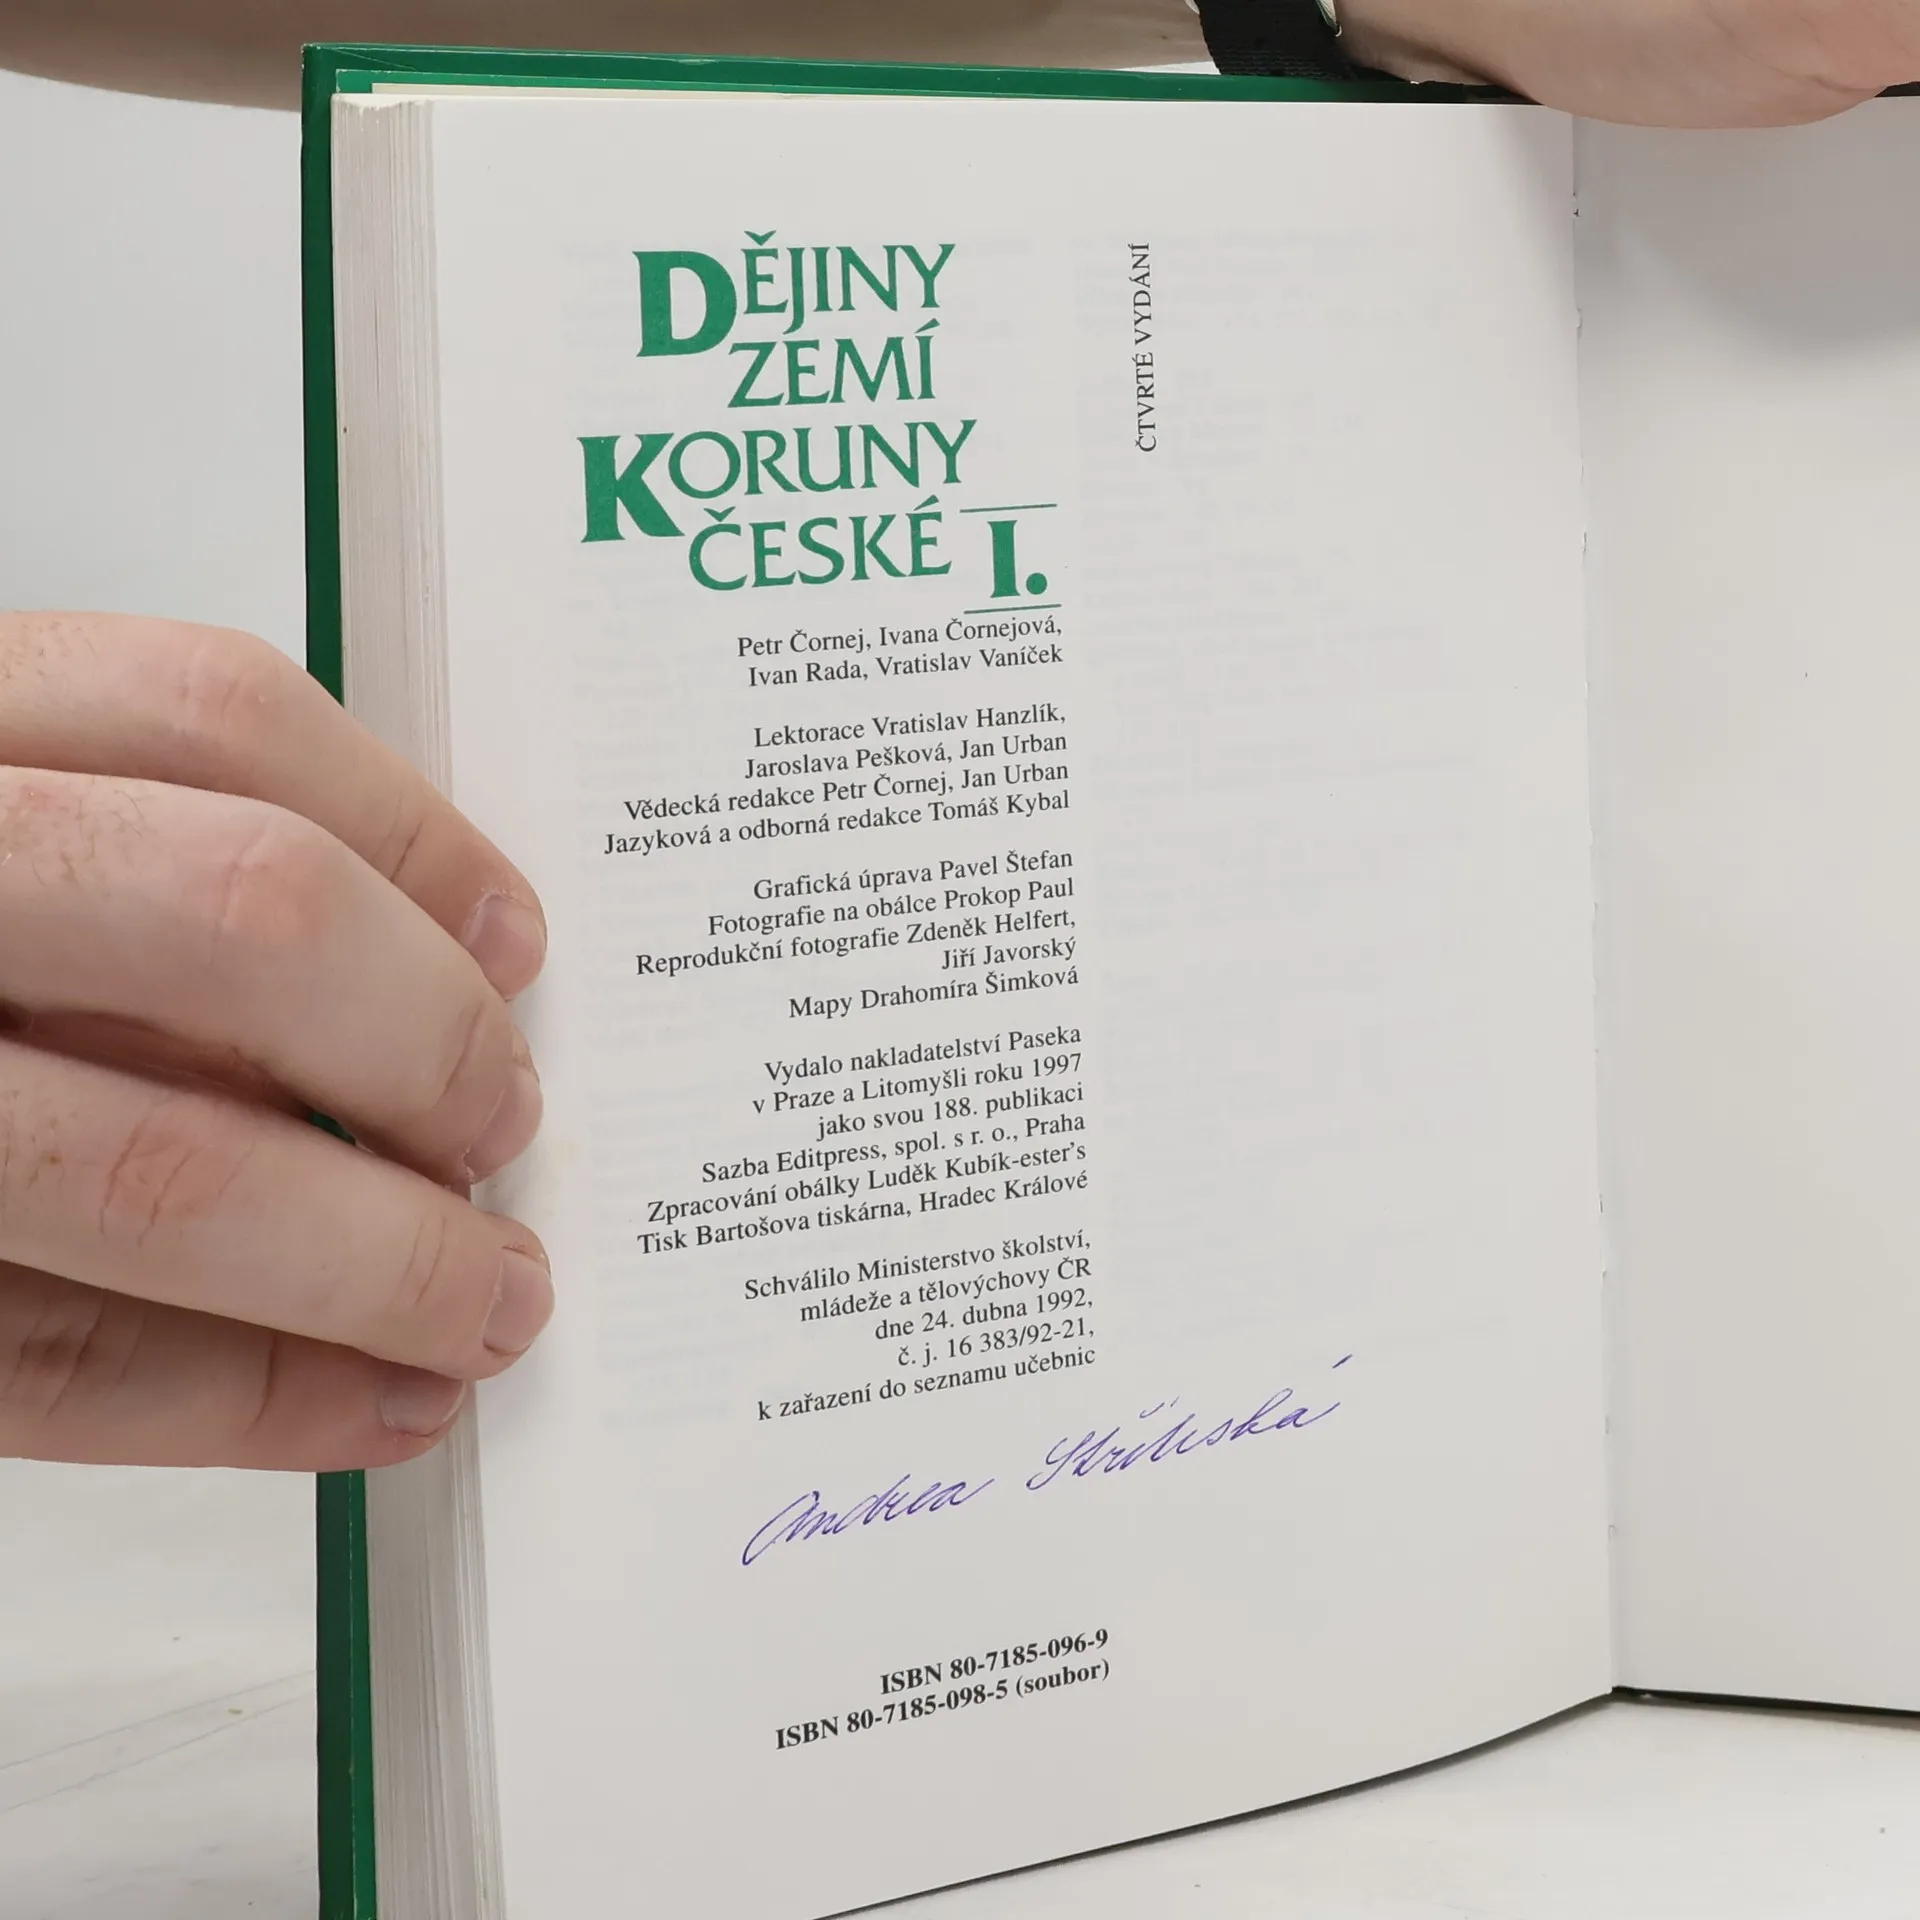 DĚJINY
ZEMÍ
KORUNY
ČESKÉ I.
ČTVRTÉ VYDÁNÍ
Petr Čornej, Ivana Čornejová,
Ivan Rada, Vratislav Vaníček
Lektorace Vratislav Hanzlík,
Jaroslava Pešková, Jan Urban
Vědecká redakce Petr Čornej, Jan Urban
Jazyková a odborná redakce Tomáš Kybal
Grafická úprava Pavel Štefan
Fotografie na obálce Prokop Paul
Reprodukční fotografie Zdeněk Helfert,
Jiří Javorský
Mapy Drahomíra Šimková
Vydalo nakladatelství Paseka
v Praze a Litomyšli roku 1997
jako svou 188. publikaci
Sazba Editpress, spol. s r. o., Praha
Zpracování obálky Luděk Kubík-ester's
Tisk Bartošova tiskárna, Hradec Králové
Schválilo Ministerstvo školství,
mládeže a tělovýchovy ČR
dne 24. dubna 1992,
č. j. 16 383/92-21,
k zařazení do seznamu učebnic
Andrea
ISBN 80-7185-096-9
ISBN 80-7185-098-5 (soubor)